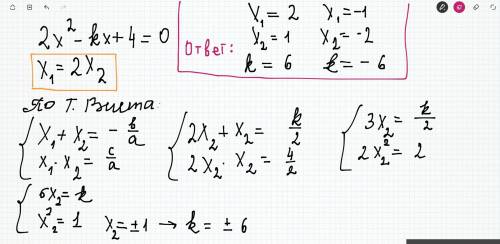 2x² - kx + 4 = 0
x₁ = 2x₂
Ответ:
x₁ = 2 x₁ = -1
x₂ = 1 x₂ = -2
k = 6 k = -6
По т. Виета:
{ x₁ + x₂ = - b/a
x₁ · x₂ = c/a
{ 2x₂ + x₂ = k/2
2x₂ · x₂ = 4/2
{ 3x₂ = k/2
2x₂² = 2
{ 6x₂ = k
x₂² = 1 x₂ = ±1 → k = ±6